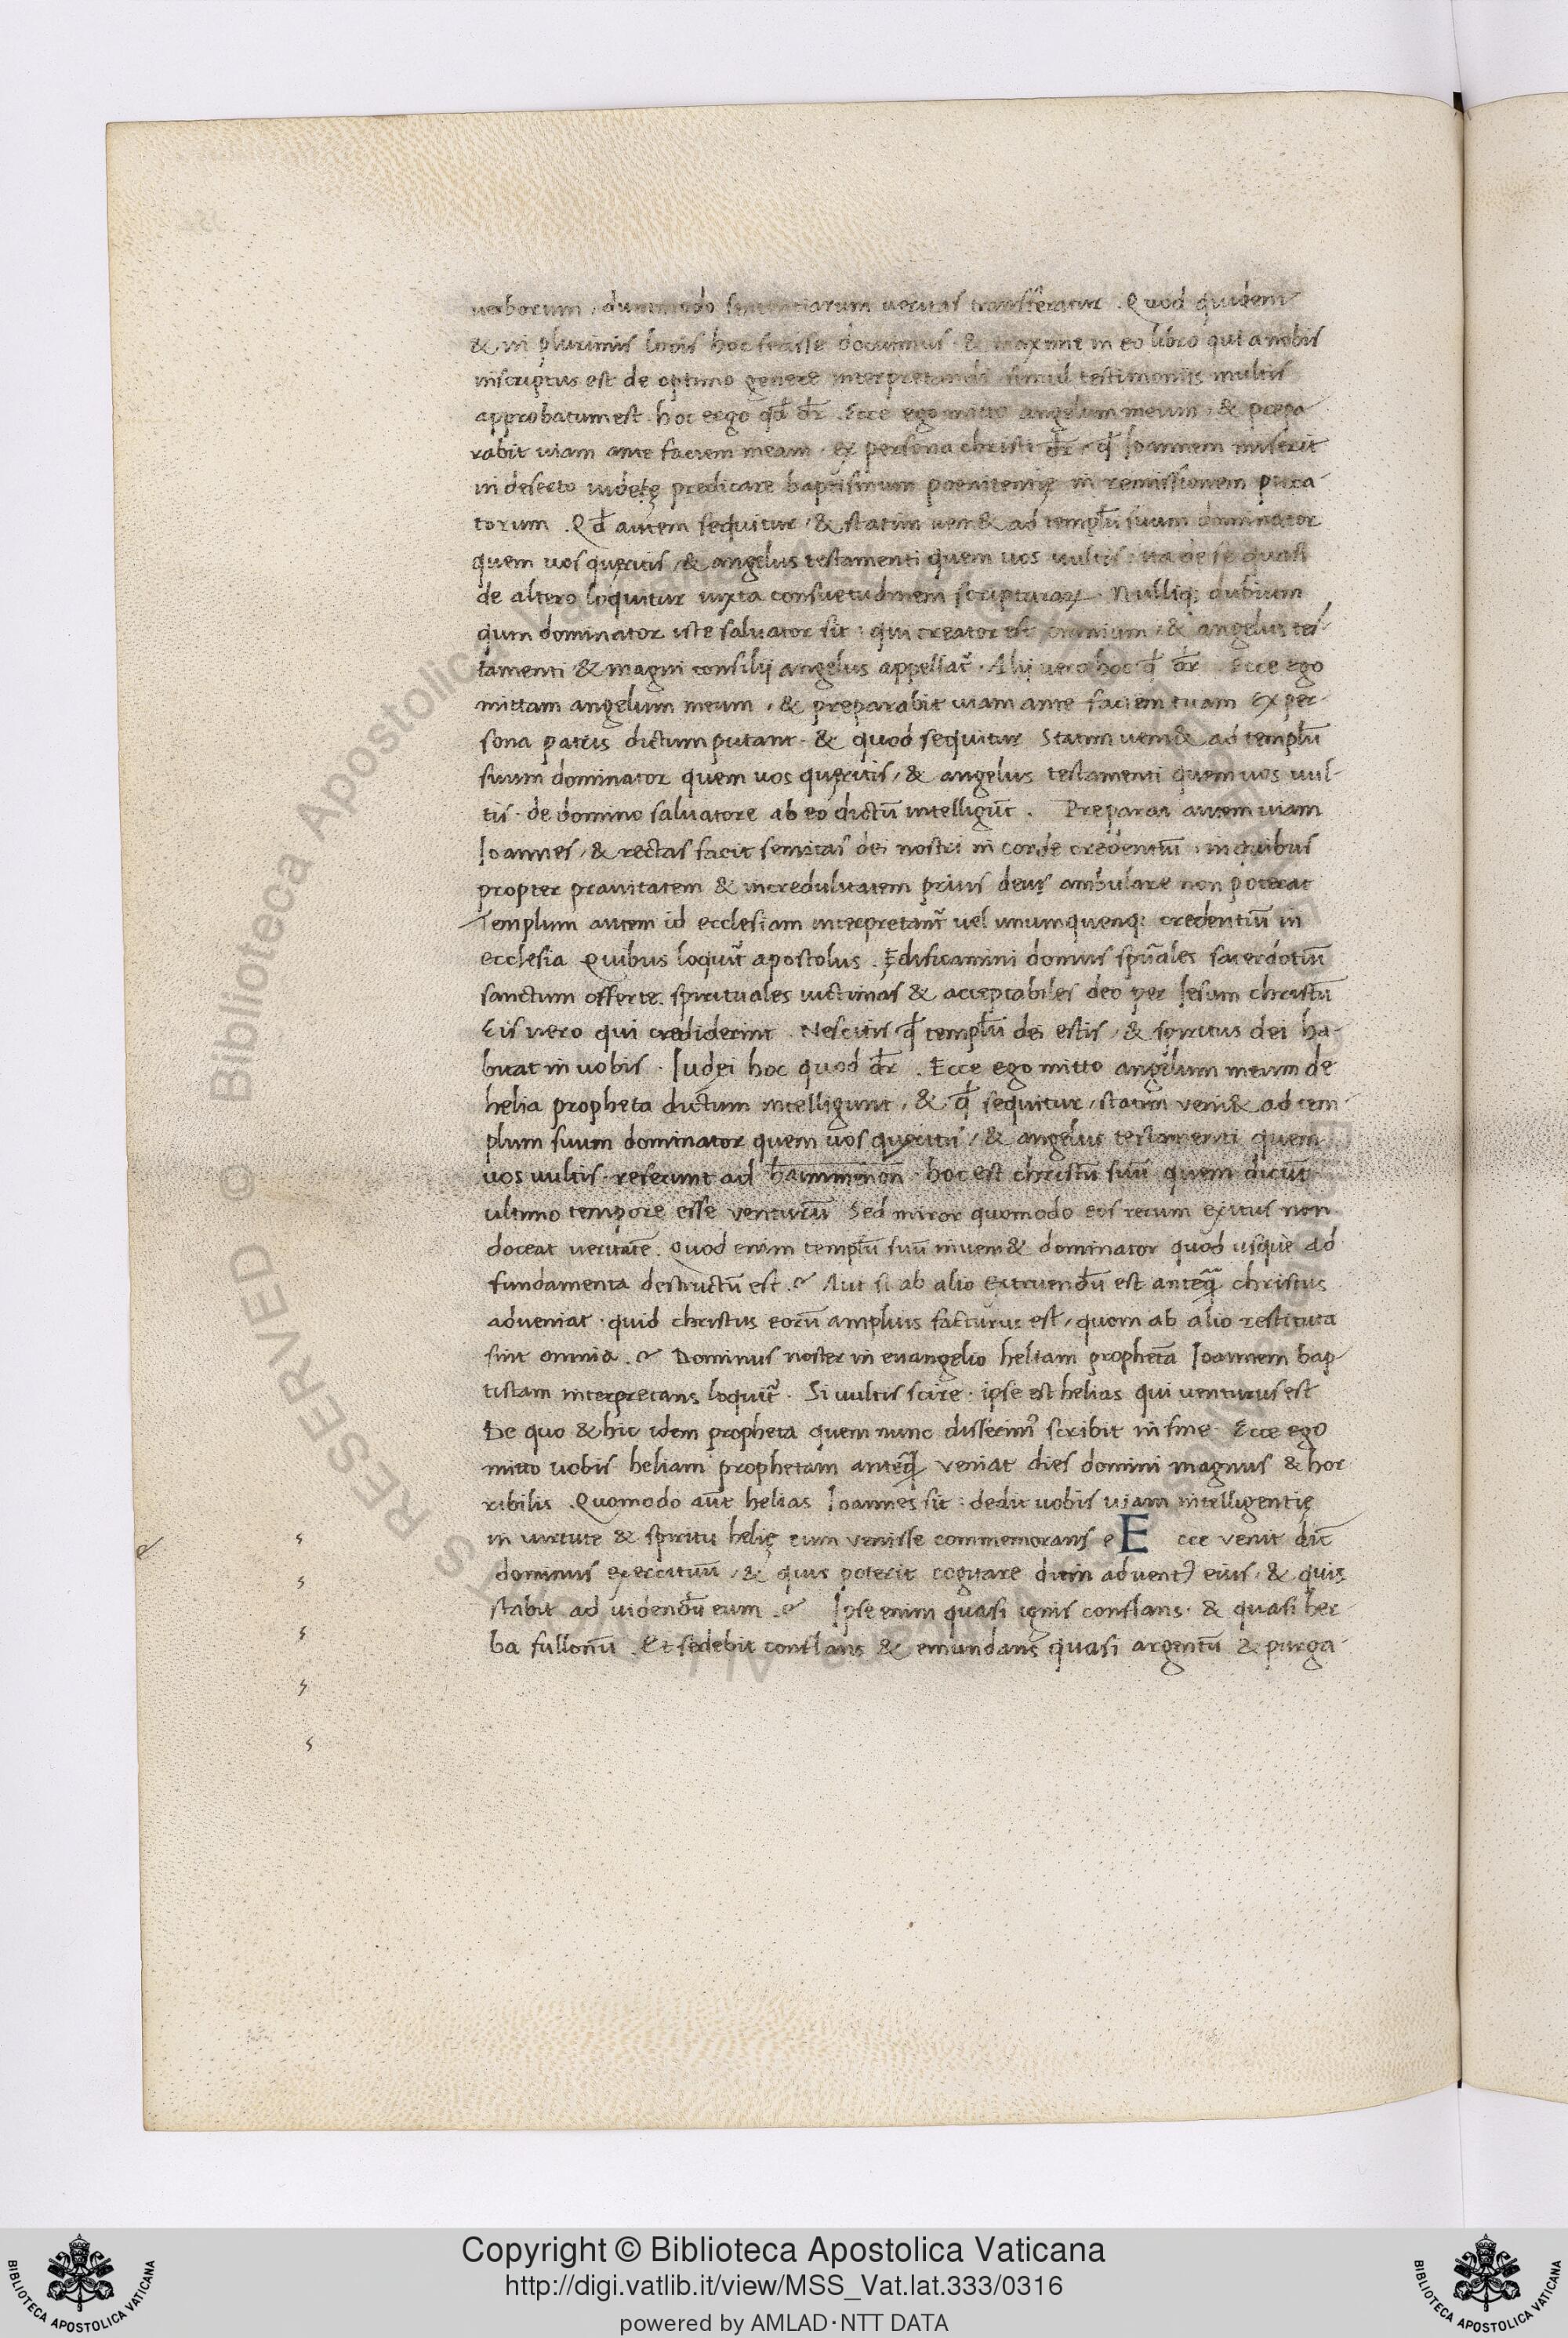 uerborum, dummodo sententiarum ueritas transferatur. Quod quidem
& in plurimis locis hoc fecisse docuimus. & maxime in eo libro qui a nobis
inscriptus est de optimo genere interpretandi simul testimoniis multis
approbatum est. hoc ergo qd̄ dr̄. Ecce ego mitto angelum meum, & prepa
rabit uiam ante faciem meam. ex persona christi dr̄, qd̄ Ioannem miserit
in deserto iudeę predicare baptismum poenitentię in remissionem pecca-
torum. Qd̄ autem sequitur, & statim ueni& ad templū suum dominator
quem uos quęritis, & angelus testamenti quem uos uultis, ita de se quasi
de altero loquitur iuxta consuetudinem scripturaꝝ. Nulliq; dubium
quin dominator iste saluator sit: qui creator est omnium, & angelus tes-
tamenti & magni consilij angelus appellat᷑. Alij uero hoc qd̄ dr̄. Ecce ego
mittam angelum meum, & preparabit uiam ante faciem tuam Ex per-
sona patris dictum putant. & quod sequitur Statim ueni& ad templū
suum dominator quem uos quęritis, & angelus testamenti quem uos uul-
tis. de domino saluatore ab eo dictū intelligūt. Preparat autem uiam
Ioannes, & rectas facit semitas dei nostri in corde credentiū, in quibus
propter prauitatem & incredulitatem prius deus ambulare non poterat
Templum autem id ecclesiam interpretant᷑ uel unumquenq; credentiū in
ecclesia Quibus loquit᷑ apostolus. Edificamini domus spūales sacerdotiū
sanctum offerte. spirituales uictimas & acceptabiles deo per Iesum christū
Eis uero qui crediderint. Nescitis qd̄ templū dei estis, & spiritus dei ha-
bitat in uobis. Iudei hoc quod dr̄. Ecce ego mitto angelum meum de
helia propheta dictum intelligunt, & qd̄ sequitur, statim veni& ad tem-
plum suum dominator quem uos quęritis, & angelus testamenti quem
uos uultis. referunt ad hammenon. hoc est christū suū quem dicūt
ultimo tempore esse venturū Sed miror quomodo eos rerum exitus non
doceat ueritatē. Quod enim templū suū inueni& dominator quod usque ad
fundamenta destructū est? Aut si ab alio extruendū est anteq̄ christus
adueniat. quid christus eorū amplius facturus est, quom ab alio restituta
sint omnia? Dominus noster in euangelio heliam prophetā Ioannem bap-
tistam interpretans loquit᷑. Si uultis scire. ipse est helias qui uenturus est
De quo & hic idem propheta quem nunc disserim᷒ scribit in fine. Ecce ego
mitto uobis heliam prophetam anteq̄ veniat dies domini magnus & hor
ribilis. Quomodo aūt helias Ioannes sit: dedit uobis uiam intelligentię
in uirtute & spiritu helię eum venisse commemorans e E cce venit dic̄
dominus exercituū, & quis poterit cogitare diem aduent᷒ eius, & quis
stabit ad uidendū eum? Ipse enim quasi ignis conflans. & quasi her-
ba fullonū. Et sedebit conflans & emundans quasi argentū & purga-
Copyright © Biblioteca Apostolica Vaticana
http://digi.vatlib.it/view/MSS_Vat.lat.333/0316
powered by AMLAD·NTT DATA
BIBLIOTECA APOSTOLICA VATICANA
BIBLIOTECA APOSTOLICA VATICANA